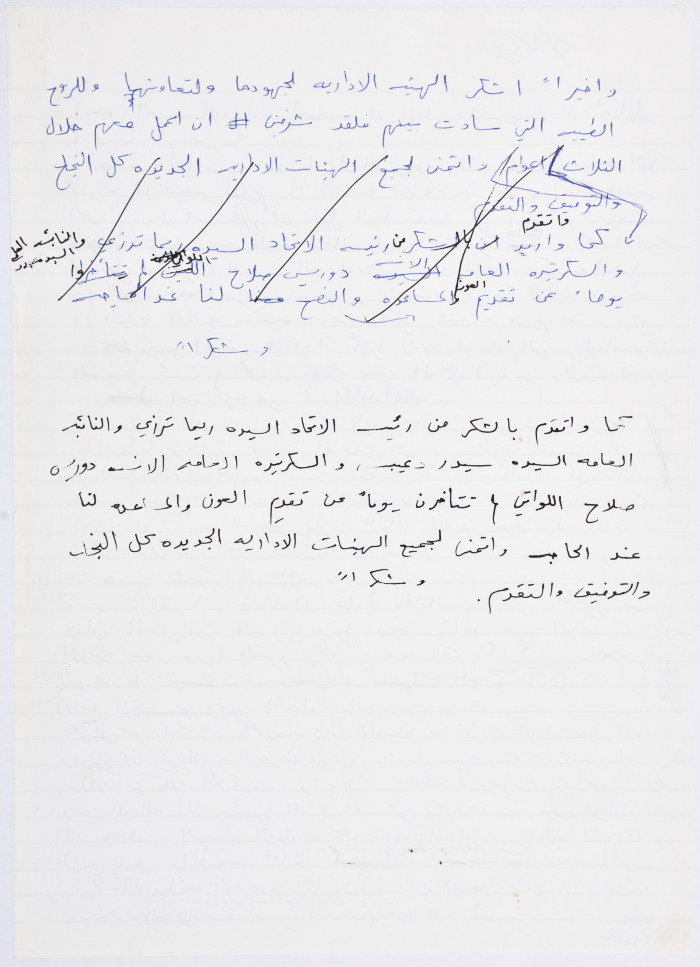 واخيراً اشكر الهيئه الاداريه لجهودها ولتعاونها وللروح
الطيبه التي سادت بينهم فلقد شرفني ان اعمل معهم خلال
الثلاث اعوام واتمنى لجميع الهيئات الاداريه الجديده كل النجاح
والتوفيق والتقدم
واتقدم
كما واريد ان بالشكر من رئيسه الاتحاد السيده ريما ترزي والنائبه العامه
السيده
والسكرتيره العامه الانسه دوريس صلاح اللواتي لم يتأخروا
يوماً عن تقديم العون والمساعده والنصح لنا عند الحاجه
وشكراً
كما واتقدم بالشكر من رئيسه الاتحاد السيده ريما ترزي والنائبه
العامه السيده سيدر دعيبس، والسكرتيره العامه الانسه دوريس
صلاح اللواتي لم تتأخرن يوماً عن تقديم العون والمساعده لنا
عند الحاجه واتمنى لجميع الهيئات الاداريه الجديده كل النجاح
والتوفيق والتقدم. وشكراً